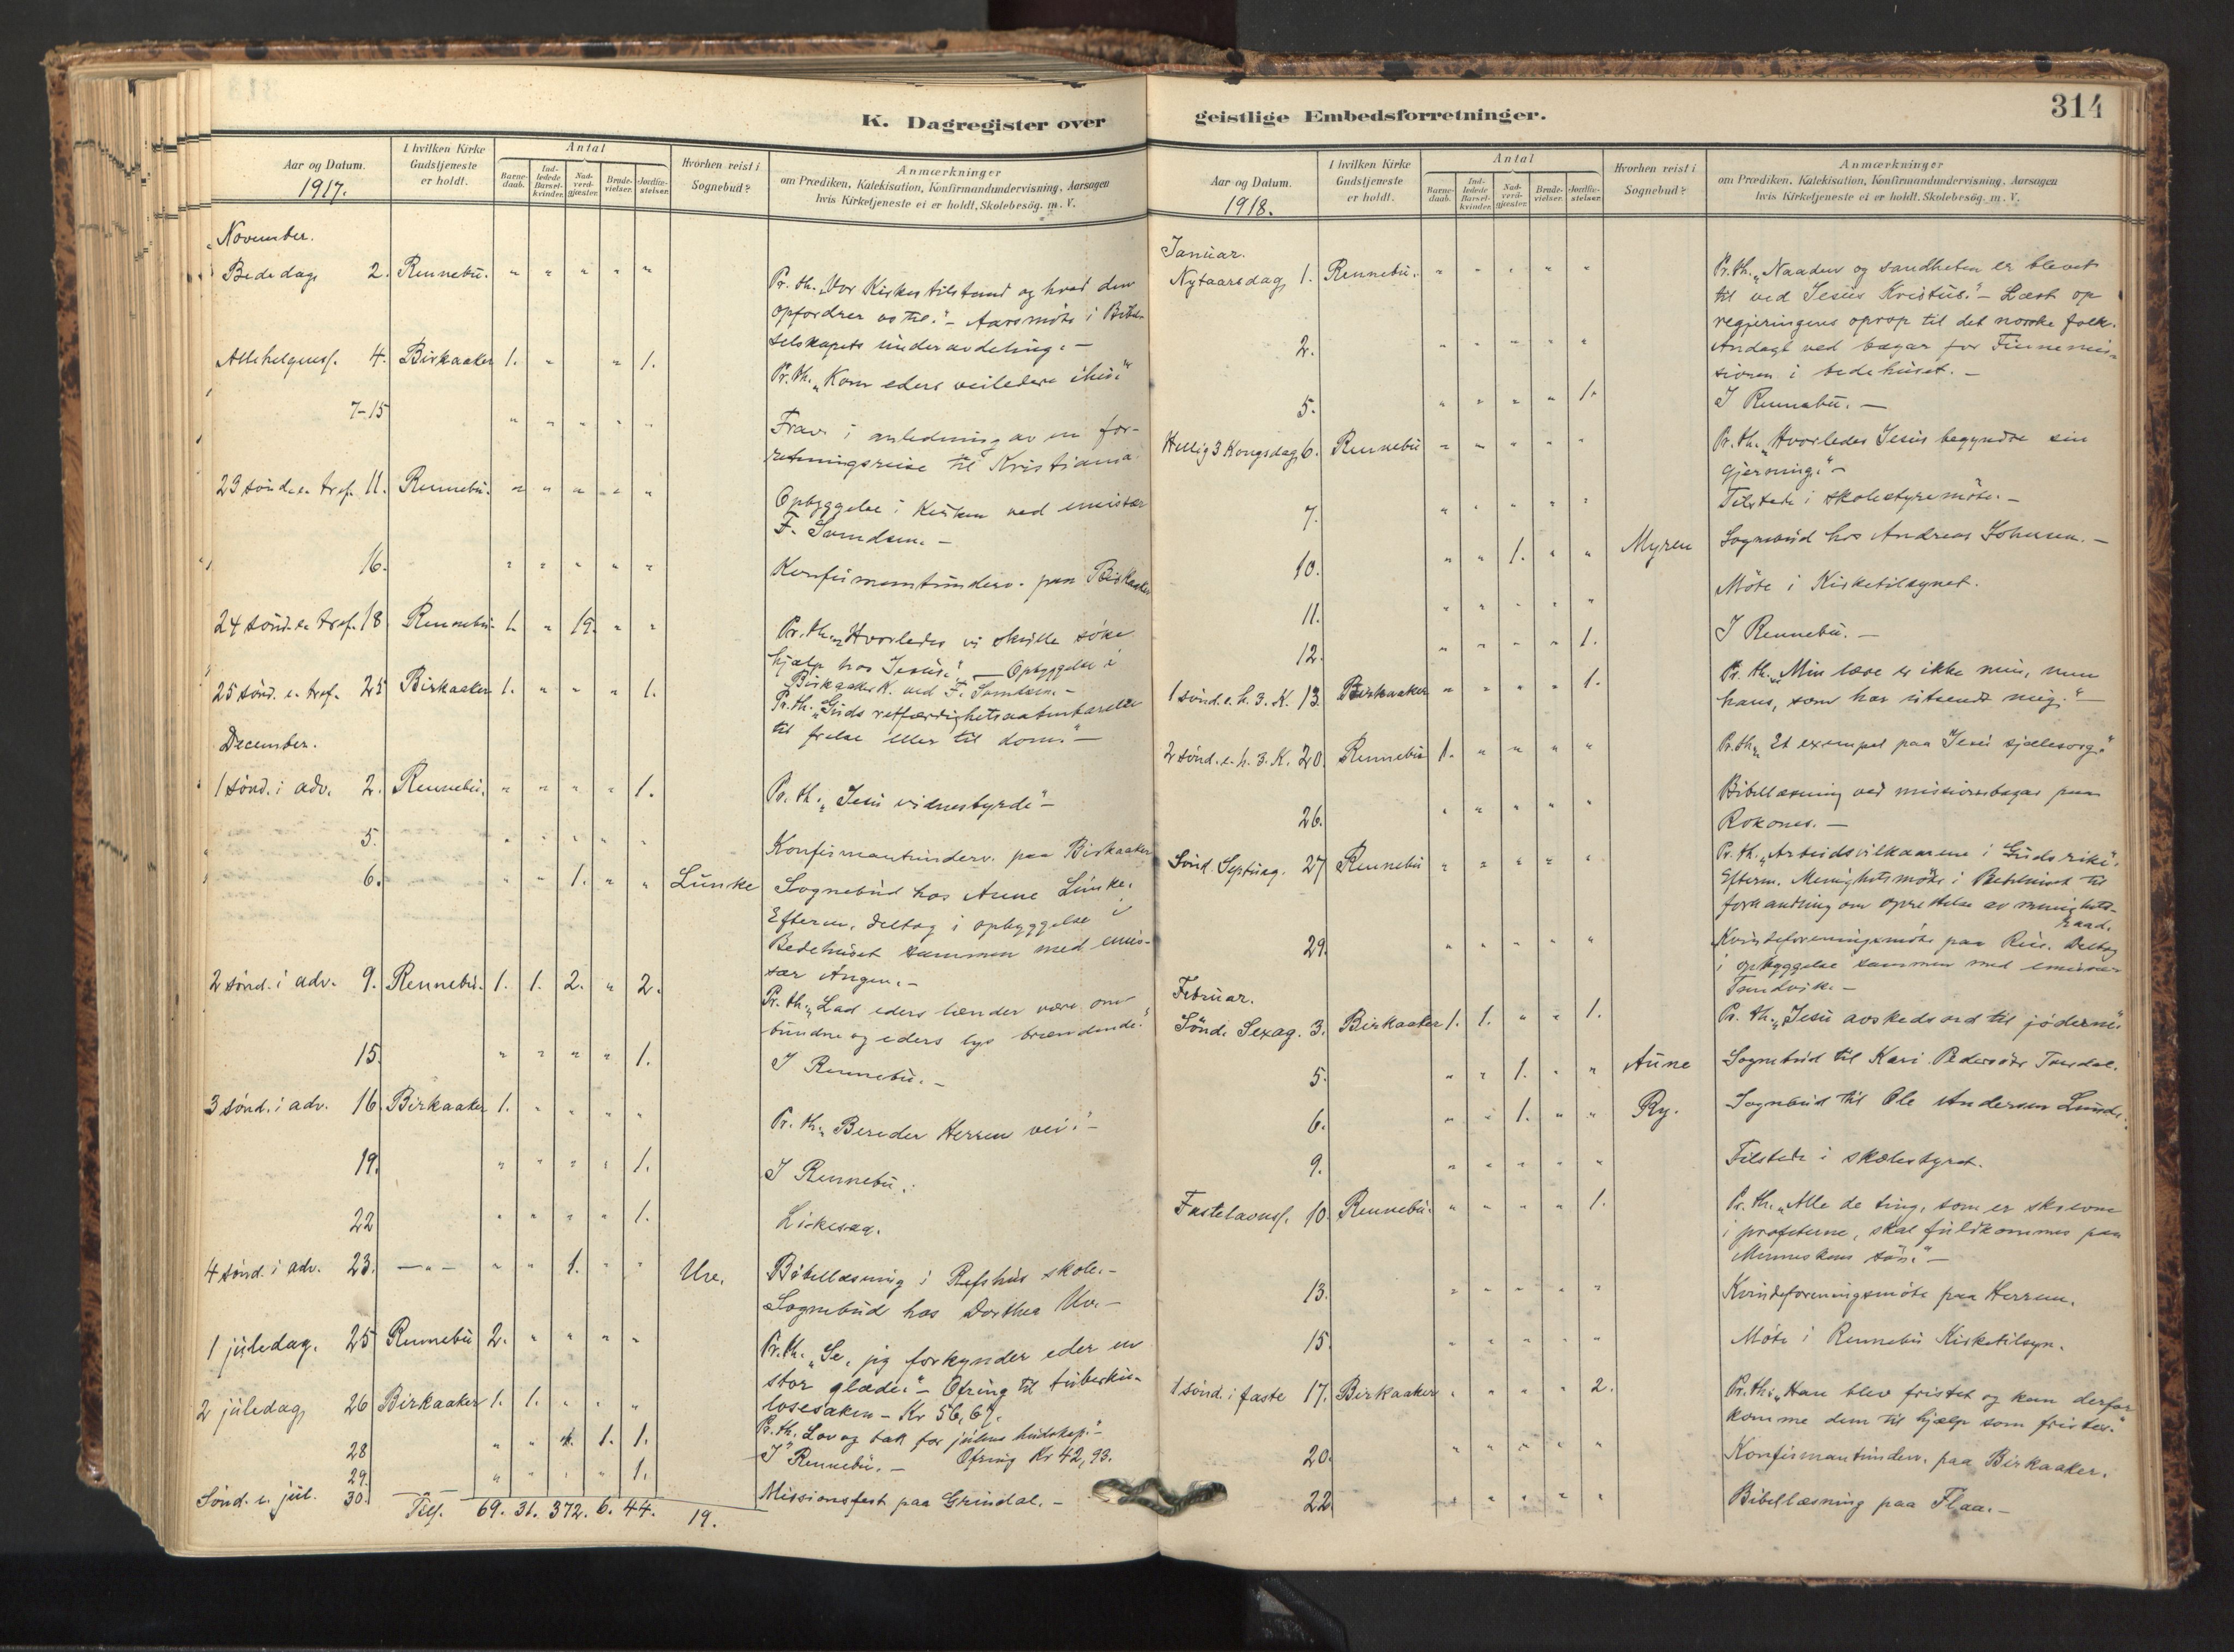 K. Dagregister over
Aar og Datum.
1917.
I hvilken Kirke
Gudstjeneste
er holdt.
Antal
Barne-
daab.
Ind-
ledede
Barsel-
kvinder.
Nad-
verd-
gjæster.
Brude-
vielser.
Jordfæ-
stelser.
Hvorhen reist i
Sognebud?
Anmærkninger
om Prædiken, Katekisation, Konfirmandundervisning, Aarsagen
hvis Kirketjeneste ei er holdt, Skolebesög. m. V.
November.
Bededag 2. Rennebu. " " " " "
Pr. th. „Vor Kirkes tilstand og hvad den
opfordrer os til." - Aarsmöte i Bibel-
selskapets underavdeling. -
Allehelgensf. 4. Birkaaker 1. " " 1. Pr. th. „Kom eders veiledere ihu."
7-15 " " " " " Frav. i anledning av en for-
retningsreise til Kristiania.
23 sönd. e. tref. 11. Rennebu. " " " " " Opbyggelse i Kirken ved emissær
F. Svendsen. -
16. " " " " " Konfirmantunderv. paa Birkaaker
24 sönd. e. tref. 18 Rennebu. 1. " 19. " " Pr. th. „Hvorledes vi skulle söke
hjælp hos Jesus." - Opbyggelse i
Birkaaker K. ved F. Svendsen. -
25 sönd. e. tref. 25 Birkaaker 1. " " " 1. Pr. th. „Guds retfærdighetsaabenbarelse
til frelse eller til dom." -
December.
1 sönd. i adv. 2. Rennebu. " " " " 1. Pr. th. „Jesu vidnesbyrd" -
5. " " " " " Konfirmantunderv. paa Birkaaker
6. " " 1. " " Lunke Sognebud hos Anne Lunke.
Efterm. deltog i opbyggelse i
Bedehuset sammen med emis-
sær Angen. -
2 sönd. i adv. 9. Rennebu. 1. 1. 2. " 2. Pr. th. „Lad eders lænder være om-
bundne og eders lys brændende."
15. " " " " 1. I Rennebu. -
3 sönd. i adv. 16. Birkaaker 1. " " " " Pr. th. „Bereder Herren vei." -
19. " " " " 1. I Rennebu.
22 " " " " 1.
4 sönd. i adv. 23. -"- " " 1. " " Uv. Bibellæsning i Refshus skole. -
Sognebud hos Dorthea Uv. -
1 juledag. 25 Rennebu 2. " " " " Pr. th. „Se, jeg forkynder eder en
stor glæde." - Ofring til tuberku-
losesaken - Kr 56,67.
2 juledag 26 Birkaaker 1. 1. " " " Pr. th. Lov og tak for julens budskap." -
28 " " 1. 1. I Rennebu. - Ofring Kr 42,93.
29. " " " " 1.
Sönd. e. jul. 30. Missionsfest paa Grindal. -
Tils. 69. 31. 372. 6. 44. 19.
geistlige Embedsforretninger.
314
Aar og Datum.
1918.
I hvilken Kirke
Gudstjeneste
er holdt.
Antal
Barne-
daab.
Ind-
ledede
Barsel-
kvinder.
Nad-
verd-
gjæster.
Brude-
vielser.
Jordfæ-
stelser.
Hvorhen reist i
Sognebud?
Anmærkninger
om Prædiken, Katekisation, Konfirmandundervisning, Aarsagen
hvis Kirketjeneste ei er holdt, Skolebesög. m. V.
Januar.
Nytaarsdag 1. Rennebu. " " " " " Pr. th. „Naaden og sandheten er blevet
til ved Jesus Kristus." - Læst op
regjeringens oprop til det norske folk.
2. " " " " " Andagt ved bazar for Finnemis-
sionen i bedehuset. -
5. " " " " 1. I Rennebu. -
Hellig 3 Kongsdag 6. Rennebu " " " " " Pr. th. „Hvorledes Jesus begyndte sin
gjerning." -
7. " " " " " Tilstede i skolestyremöte. -
10. " " 1. " " Myren Sognebud hos Andreas Johnsen. -
11. " " " " " Möte i Kirketilsynet.
12. " " " " 1. I Rennebu. -
1 sönd. e. h. 3. K. 13. Birkaaker " " " " 1. Pr. th. „Min lære er ikke min, men
hans, som har utsendt mig." -
2 sönd. e. h. 3. K. 20. Rennebu 1. " " " " Pr. th. „Et exempel paa Jesu sjælesorg."
26. " " " " " Bibellæsning ved missionsbazar paa
Rokones. -
Sönd. Septuag. 27 Rennebu " " " " " Pr. th. „Arbeidsvilkaarene i Guds rike".
Efterm. Menighetsmöte i Bedehuset til
forhandling om oprettelse av menighets-
raad.
29. " " " " " Kvindeforeningsmöte paa Rise. Deltog
i opbyggelse sammen med emissær
Sandvik. -
Februar.
Sönd. Sexag. 3. Birkaaker 1. 1. " " 1. Pr. th. „Jesu avskedsord til jöderne"
5. " " 1. " " Aune Sognebud til Kari Pedersdtr
6. " " 1. " " Ry. Sognebud til Ole Andersen
9. " " " " " Tilstede i skolestyret.
Fastelavnsf. 10. Rennebu. " " " " 1. Pr. th. „Alle de ting, som er skrevne
i profeterne, skal fuldkommes paa
Menneskens sön." -
13. " " " " " Kvindeforeningsmöte paa Herrem.
15. " " " " " Möte i Rennebu Kirketilsyn.
1 sönd. i faste 17. Birkaaker " " " " 2. Pr. th. „Han blev fristet og kan derfor
komme dem til hjælp som fristes."
20. " " " " " Konfirmantunderv. paa Birkaaker.
22 " " " " " Bibellæsning paa Flaa. -